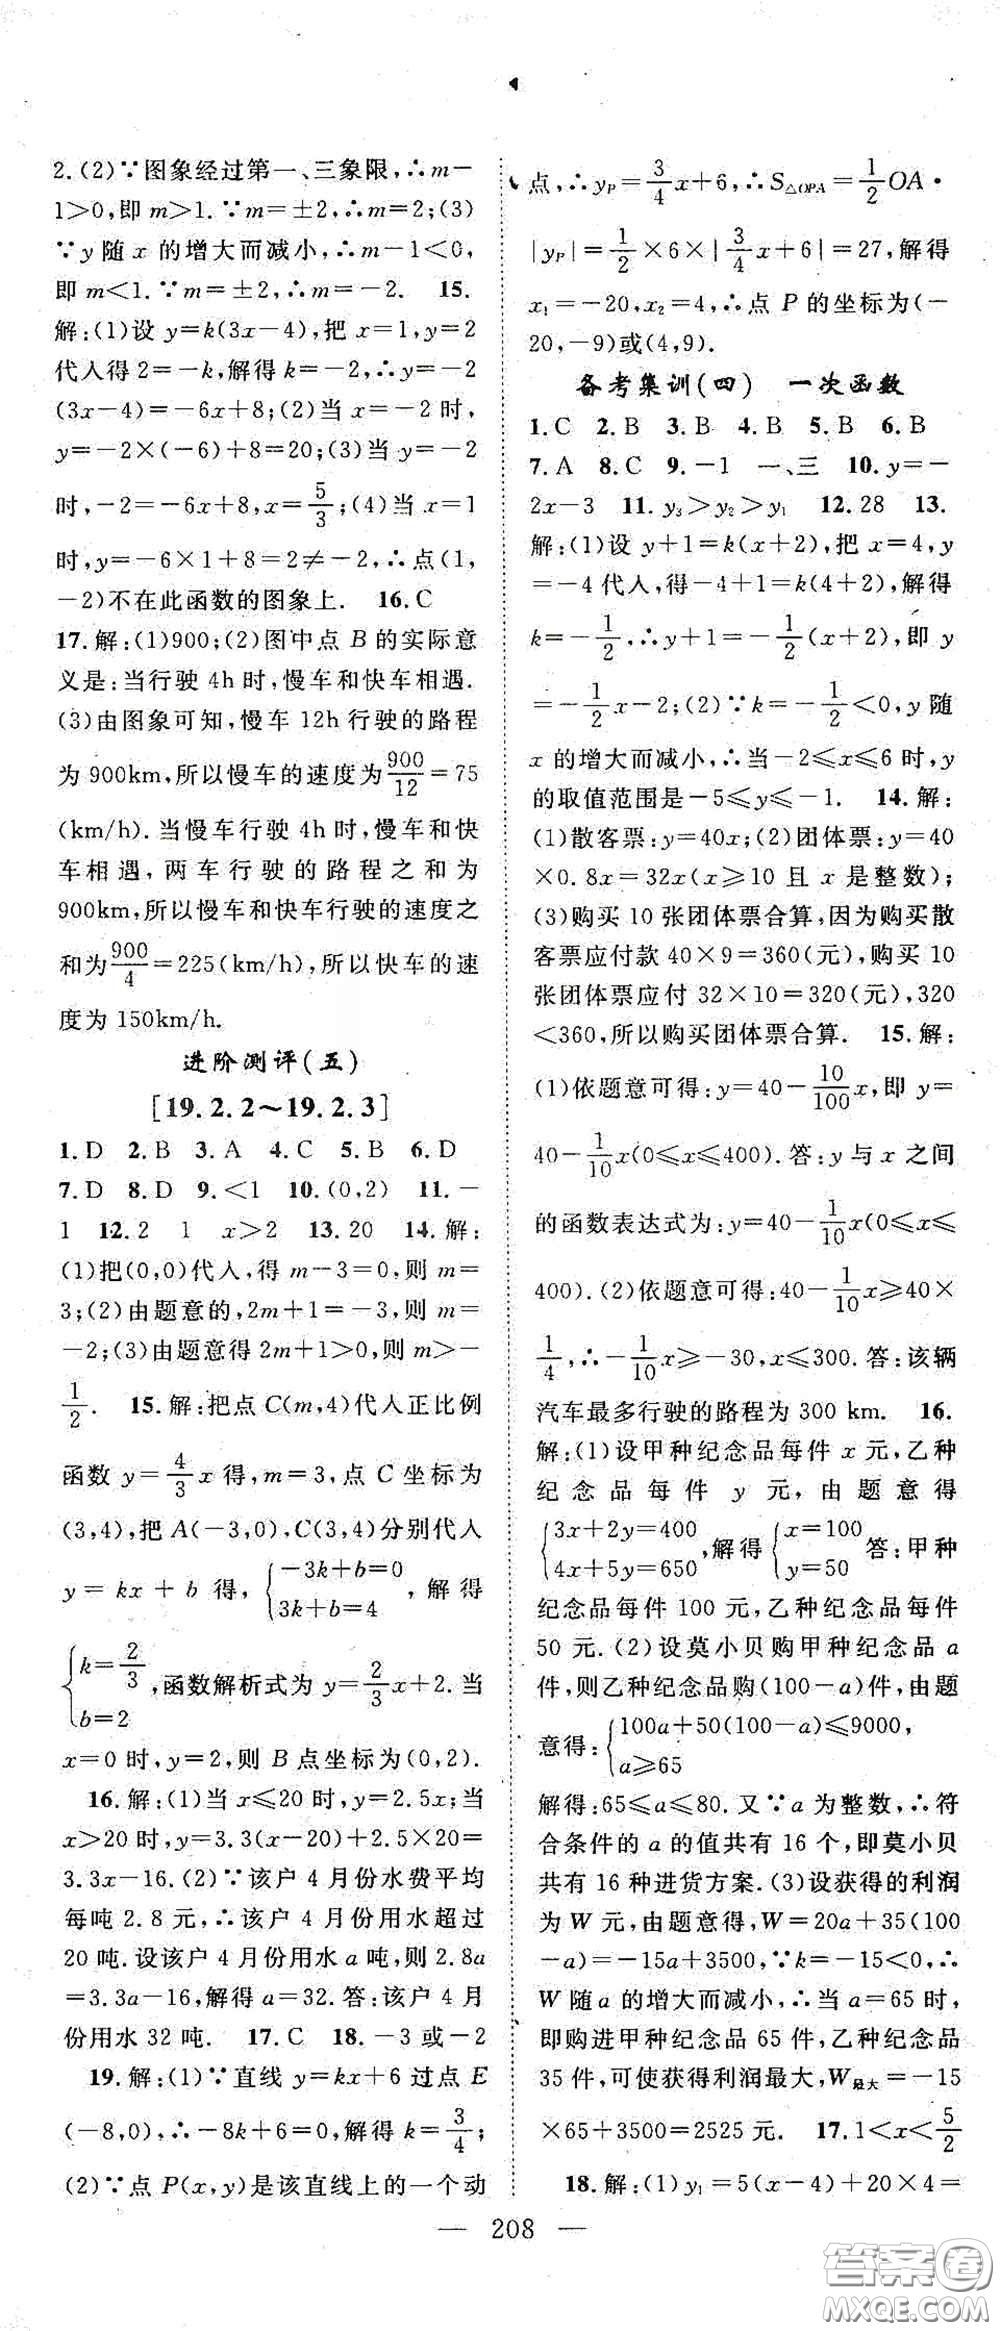 2.(2)∵图象经过第一、三象限,∴m-
1>0,即m>1.∵m=±2,∴m=2;(3)
∵y随x的增大而减小,∴m-1<0,
即m<1.∵m=±2,∴m=-2. 15.
解:(1)设y=k(3x-4),把x=1,y=2
代入得2=-k,解得k=-2,∴y=-2
(3x-4)=-6x+8;(2)当x=-2时,
y=-2×(-6)+8=20;(3)当y=-2
时,-2=-6x+8,x=5/3;(4)当x=1
时,y=-6×1+8=2≠-2,∴点(1,
-2)不在此函数的图象上. 16.C
17.解:(1)900;(2)图中点B的实际意
义是:当行驶4h时,慢车和快车相遇.
(3)由图象可知,慢车12h行驶的路程
为900km,所以慢车的速度为900/12=75
(km/h).当慢车行驶4h时,慢车和快
车相遇,两车行驶的路程之和为
900km,所以慢车和快车行驶的速度之
和为900/4=225(km/h),所以快车的速
度为150km/h.
进阶测评(五)
[19.2.2~19.2.3]
1.D 2.B 3.A 4.C 5.B 6.D
7.D 8.D 9.<1 10.(0,2) 11.-
1 12.2 1 x>2 13.20 14.解:
(1)把(0,0)代入,得m-3=0,则m=
3;(2)由题意的,2m+1=-3,则m=
-2;(3)由题意得2m+1>0,则m>-
1/2. 15.解:把点C(m,4)代入正比例
函数y=4/3x得,m=3,点C坐标为
(3,4),把A(-3,0),C(3,4)分别代入
y=kx+b得,{-3k+b=0 3k+b=4,解得
{k=2/3 b=2,函数解析式为y=2/3x+2.当
x=0时,y=2,则B点坐标为(0,2).
16.解:(1)当x≤20时,y=2.5x;当
x>20时,y=3.3(x-20)+2.5×20=
3.3x-16.(2)∵该户4月份水费平均
每吨2.8元,∴该户4月份用水超过
20吨.设该户4月份用水a吨,则2.8a
=3.3a-16,解得a=32.答:该户4月
份用水32吨. 17.C 18.-3或-2
19.解:(1)∵直线y=kx+6过点E
(-8,0),∴-8k+6=0,解得k=3/4;
(2)∵点P(x,y)是该直线上的一个动
点,∴yP=3/4x+6,∴S△OPA=1/2OA·
|yP|=1/2×6×|3/4x+6|=27,解得
x1=-20,x2=4,∴点P的坐标为(-
20,-9)或(4,9).
备考集训(四) 一次函数
1.C 2.B 3.B 4.B 5.B 6.B
7.A 8.C 9.-1 一、三 10.y=-
2x-3 11.y3>y2>y1 12.28 13.
解:(1)设y+1=k(x+2),把x=4,y
=-4代入,得-4+1=k(4+2),解得
k=-1/2,∴y+1=-1/2(x+2),即y
=-1/2x-2;(2)∵k=-1/2<0,y随
x的增大而减小,∴当-2≤x≤6时,y
的取值范围是-5≤y≤-1. 14.解:
(1)散客票:y=40x;(2)团体票:y=40
×0.8x=32x(x≥10且x是整数);
(3)购买10张团体票合算,因为购买散
客票应付款40×9=360(元),购买10
张团体票应付32×10=320(元),320
<360,所以购买团体票合算. 15.解:
(1)依题意可得:y=40-10/100x,即y=
40-1/10x(0≤x≤400).答:y与x之间
的函数表达式为:y=40-1/10x(0≤x≤
400).(2)依题意可得:40-1/10x≥40×
1/4,∴-1/10x≥-30,x≤300.答:该辆
汽车最多行驶的路程为300 km. 16.
解:(1)设甲种纪念品每件x元,乙种
纪念品每件y元,由题意得
{3x+2y=400 4x+5y=650,解得{x=100 y=50 答:甲种
纪念品每件100元,乙种纪念品每件
50元.(2)设莫小贝购甲种纪念品a
件,则乙种纪念品购(100-a)件,由题
意得:{100a+50(100-a)≤9000, a≥65
解得:65≤a≤80.又∵a为整数,∴符
合条件的a的值共有16个,即莫小贝
共有16种进货方案.(3)设获得的利润
为W元,由题意得,W=20a+35(100
-a)=-15a+3500,∵k=-15<0,∴
W随a的增大而减小,∴当a=65时,
即购进甲种纪念品65件,乙种纪念品
35件,可使获得利润最大,W最大=-15
×65+3500=2525元. 17.1<x<5/2
18.解:(1)y1=5(x-4)+20×4=
— 208 —
答案圈
MXQE.COM